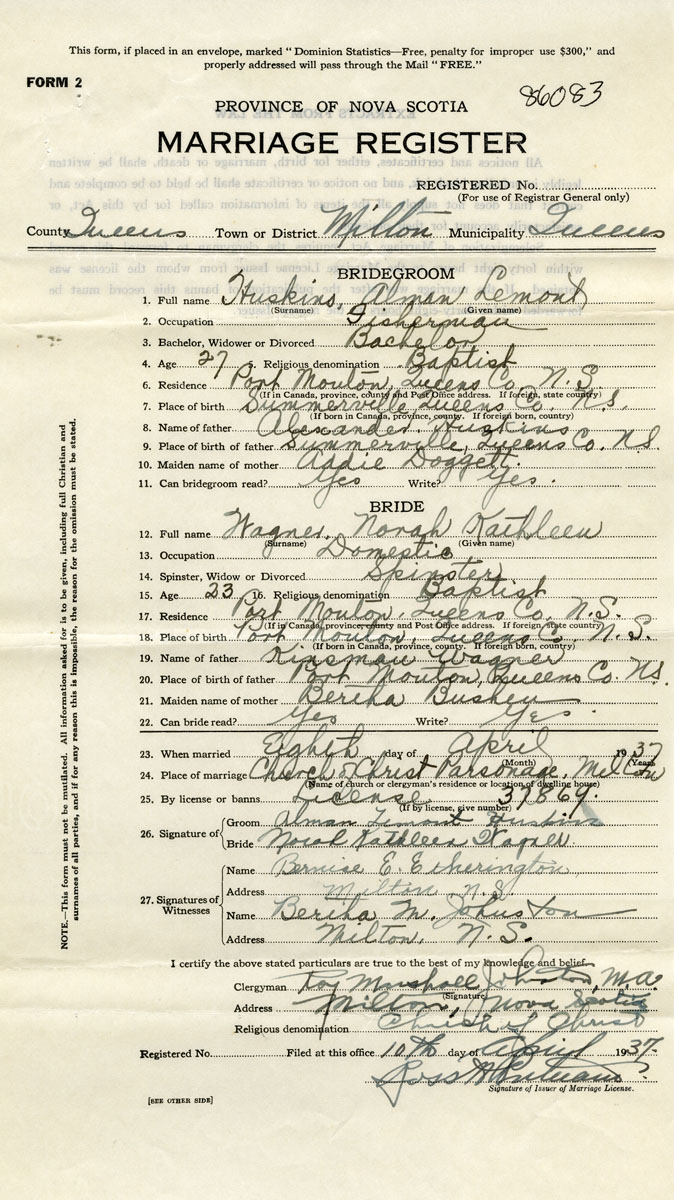 This form, if placed in an envelope, marked "Dominion Statistics—Free, penalty for improper use $300," and
properly addressed will pass through the Mail "FREE."
FORM 2
86083
PROVINCE OF NOVA SCOTIA
MARRIAGE REGISTER
REGISTERED No.
(For use of Registrar General only)
County Queens Town or District Milton Municipality Queens
BRIDEGROOM
1. Full name Huskins, Alman Lemont
(Surname) (Given name)
2. Occupation Fisherman
3. Bachelor, Widower or Divorced Bachelor
4. Age 27 5. Religious denomination Baptist
6. Residence Port Mouton, Queens Co. N.S.
(If in Canada, province, county and Post Office address. If foreign, state country)
7. Place of birth Summerville, Queens Co. N.S.
(If born in Canada, province, county. If foreign born, country)
8. Name of father Alexander Huskins
9. Place of birth of father Summerville, Queens Co. N.S.
10. Maiden name of mother Addie Doggett.
11. Can bridegroom read? Yes Write? Yes.
BRIDE
12. Full name Wagner, Norah Kathleen
(Surname) (Given name)
13. Occupation Domestic
14. Spinster, Widow or Divorced Spinster
15. Age 23 16. Religious denomination Baptist
17. Residence Port Mouton, Queens Co. N.S.
(If in Canada, province, county and Post Office address. If foreign, state country)
18. Place of birth Port Mouton, Queens Co. N.S.
(If born in Canada, province, county. If foreign born, country)
19. Name of father Kinsman Wagner
20. Place of birth of father Port Mouton, Queens Co. N.S.
21. Maiden name of mother Bertha Bushen
22. Can bride read? Yes Write? Yes.
23. When married Eighth day of April 1937
(Month) (Year)
24. Place of marriage Church of Christ Parsonage, Milton
(Name of church or clergyman's residence or location of dwelling house)
25. By license or banns License 37869.
(If by license, give number)
26. Signature of
Groom Alman Lemont Huskins
Bride Norah Kathleen Wagner
27. Signatures of Witnesses
Name Bernise E. Etherington
Address Milton N.S.
Name Bertha M. Johnston
Address Milton, N.S.
I certify the above stated particulars are true to the best of my knowledge and belief.
Clergyman Roy Marshall Johnston, M.A.
(Signature)
Address Milton, Nova Scotia
Religious denomination Church of Christ
Registered No. Filed at this office 10th day of April 1937
Signature of Issuer of Marriage License.
[SEE OTHER SIDE]
NOTE.—This form must not be mutilated. All information asked for is to be given, including full Christian and
surnames of all parties, and if for any reason this is impossible, the reason for the omission must be stated.